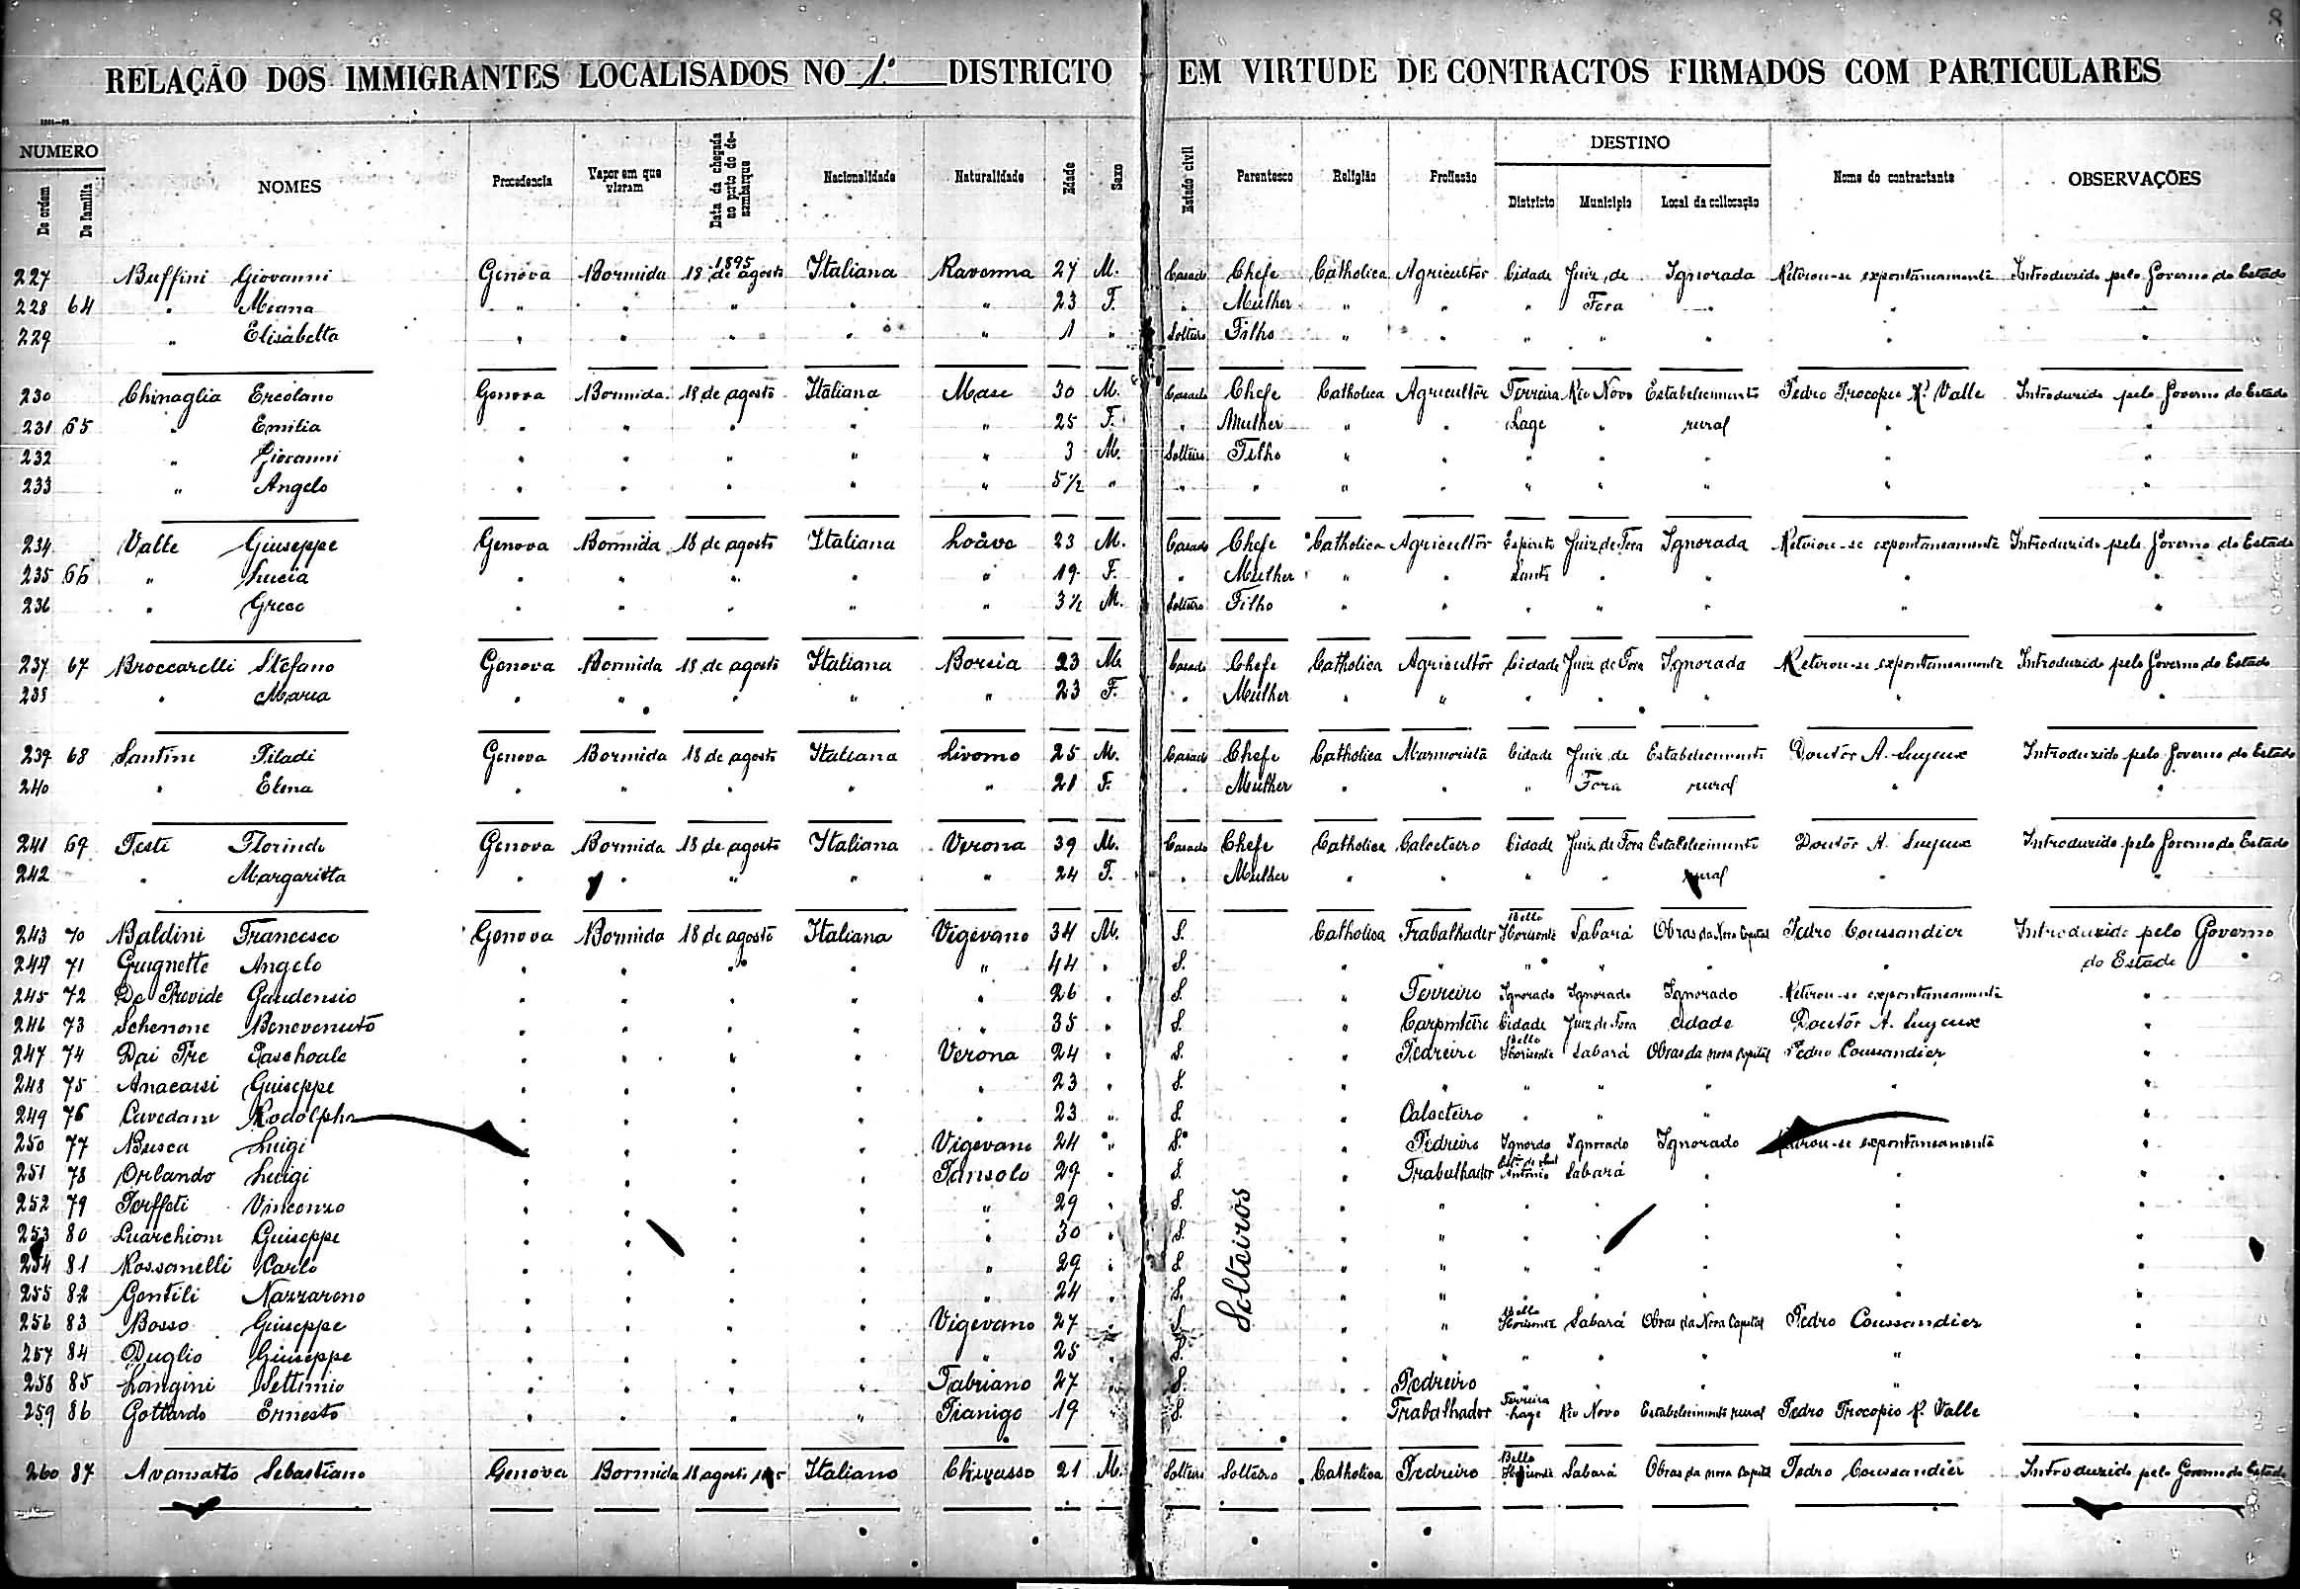 8
RELAÇÃO DOS IMMIGRANTES LOCALISADOS NO 1º DISTRICTO EM VIRTUDE DE CONTRACTOS FIRMADOS COM PARTICULARES
NUMERO
De ordem De familia NOMES Procedencia Vapor em que vieram Data da chegada ao porto do desembarque Nacionalidade Naturalidade Edade Sexo Estado civil Parentesco Religião Profissão DESTINO Districto Municipio Local da collocação Nome do contractante OBSERVAÇÕES
227 Buffini Giovanni Genova Bormida 18 de agosto 1895 Italiana Ravenna 27 M. Casado Chefe Catholica Agricultôr Cidade Juiz de Ignorada Retirou-se expontaneamente Introduzido pelo Governo do Estado
228 64 " " " " " " 23 F. " Mulher " " " Fora " " "
229 " Elisabetta " " " " " 1 " Solteiro Filho " " " " " " "
230 Chinaglia Ercolano Genova Bormida 18 de agosto Italiana Mase 30 M. Casado Chefe Catholica Agricultôr Ferreira Rio Novo Estabelecimento Pedro Procopio R. Valle Introduzido pelo Governo do Estado
231 65 " Emilia " " " " " 25 F. " Mulher " " Lage " rural " "
232 " Giovanni " " " " " 3 M. Solteiro Filho " " " " " " "
233 " Angelo " " " " " 5 1/2 " " " " " " " " " "
234 Valle Giuseppe Genova Bormida 18 de agosto Italiana 23 M. Casado Chefe Catholica Agricultôr Espirito Juiz de Fora Ignorada Retirou-se expontaneamente Introduzido pelo Governo do Estado
235 66 " Lucia " " " " " 19 F. " Mulher " " Santo " " " "
236 " Greco " " " " " 3 1/2 M. Solteiro Filho " " " " " " "
237 67 Broccarelli Stefano Genova Bormida 18 de agosto Italiana Borcia 23 M. Casado Chefe Catholica Agricultôr Cidade Juiz de Fora Ignorada Retirou-se expontaneamente Introduzido pelo Governo do Estado
238 " Maria " " " " " 23 F. " Mulher " " " " " " "
239 68 Santini Piladi Genova Bormida 18 de agosto Italiana Livorno 25 M. Casado Chefe Catholica Marmorista Cidade Juiz de Estabelecimento Doutôr A. Introduzido pelo Governo do Estado
240 " Elena " " " " " 21 F. " Mulher " " " Fora rural " "
241 69 Testi Florindo Genova Bormida 18 de agosto Italiana Verona 39 M. Casado Chefe Catholica Calceteiro Cidade Juiz de Fora Estabelecimento Doutôr A. Introduzido pelo Governo do Estado
242 " Margaritta " " " " " 24 F. " Mulher " " " " rural " "
243 70 Baldini Francesco Genova Bormida 18 de agosto Italiana Vigevano 34 M. S. Catholica Trabalhador Bello Horisonte Sabará Obras da Nova Capital Pedro Coussandier Introduzido pelo Governo
244 71 Grugnette Angelo " " " " " 44 " S. " " " " " " do Estado "
245 72 De Provide Gaudensio " " " " " 26 " S. " Ferreiro Ignorado Ignorado Ignorado Retirou-se expontaneamente "
246 73 Schenone Benevenuto " " " " " 35 " S. " Carpinteiro Cidade Juiz de Fora Cidade Doutôr A. "
247 74 Dai Pre Paschoale " " " " Verona 24 " S. " Pedreiro Bello Horisonte Sabará Obras da nova Capital Pedro Coussandier "
248 75 Anacarsi Giuseppe " " " " " 23 " S. " " " " " " "
249 76 Cavedani Rodolpho " " " " " 23 " S. " Calceteiro " " " " "
250 77 Busca Luigi " " " " Vigevano 24 " S. " Pedreiro Ignorado Ignorado Ignorado Retirou-se expontaneamente "
251 78 Orlando Luigi " " " " Pansolo 29 " S. " Trabalhador Antonio Sabará " " "
252 79 Vincenzo " " " " " 29 " S. " " " " " " "
253 80 Giuseppe " " " " " 30 " S. " " " " " " "
254 81 Rossanelli Carlo " " " " " 29 " S. " " " " " " "
255 82 Gentili Nazzareno " " " " " 24 " S. " " " " " " "
Solteiros
256 83 Bosso Giuseppe " " " " Vigevano 27 " S. " " Bello Horisonte Sabará Obras da Nova Capital Pedro Coussandier "
257 84 Duglio Giuseppe " " " " " 25 " S. " " " " " " "
258 85 Longini Settimio " " " " Fabriano 27 " S. " Pedreiro " " " " "
259 86 Gottardo Ernesto " " " " Pianigo 19 " S. " Trabalhador Ferreira Lage Rio Novo Estabelecimento rural Pedro Procopio R. Valle "
260 87 Avansatto Sebastiano Genova Bormida 18 agosto 1895 Italiano Chivasso 21 M. Solteiro Solteiro Catholica Pedreiro Bello Horisonte Sabará Obras da nova Capital Pedro Coussandier Introduzido pelo Governo do Estado